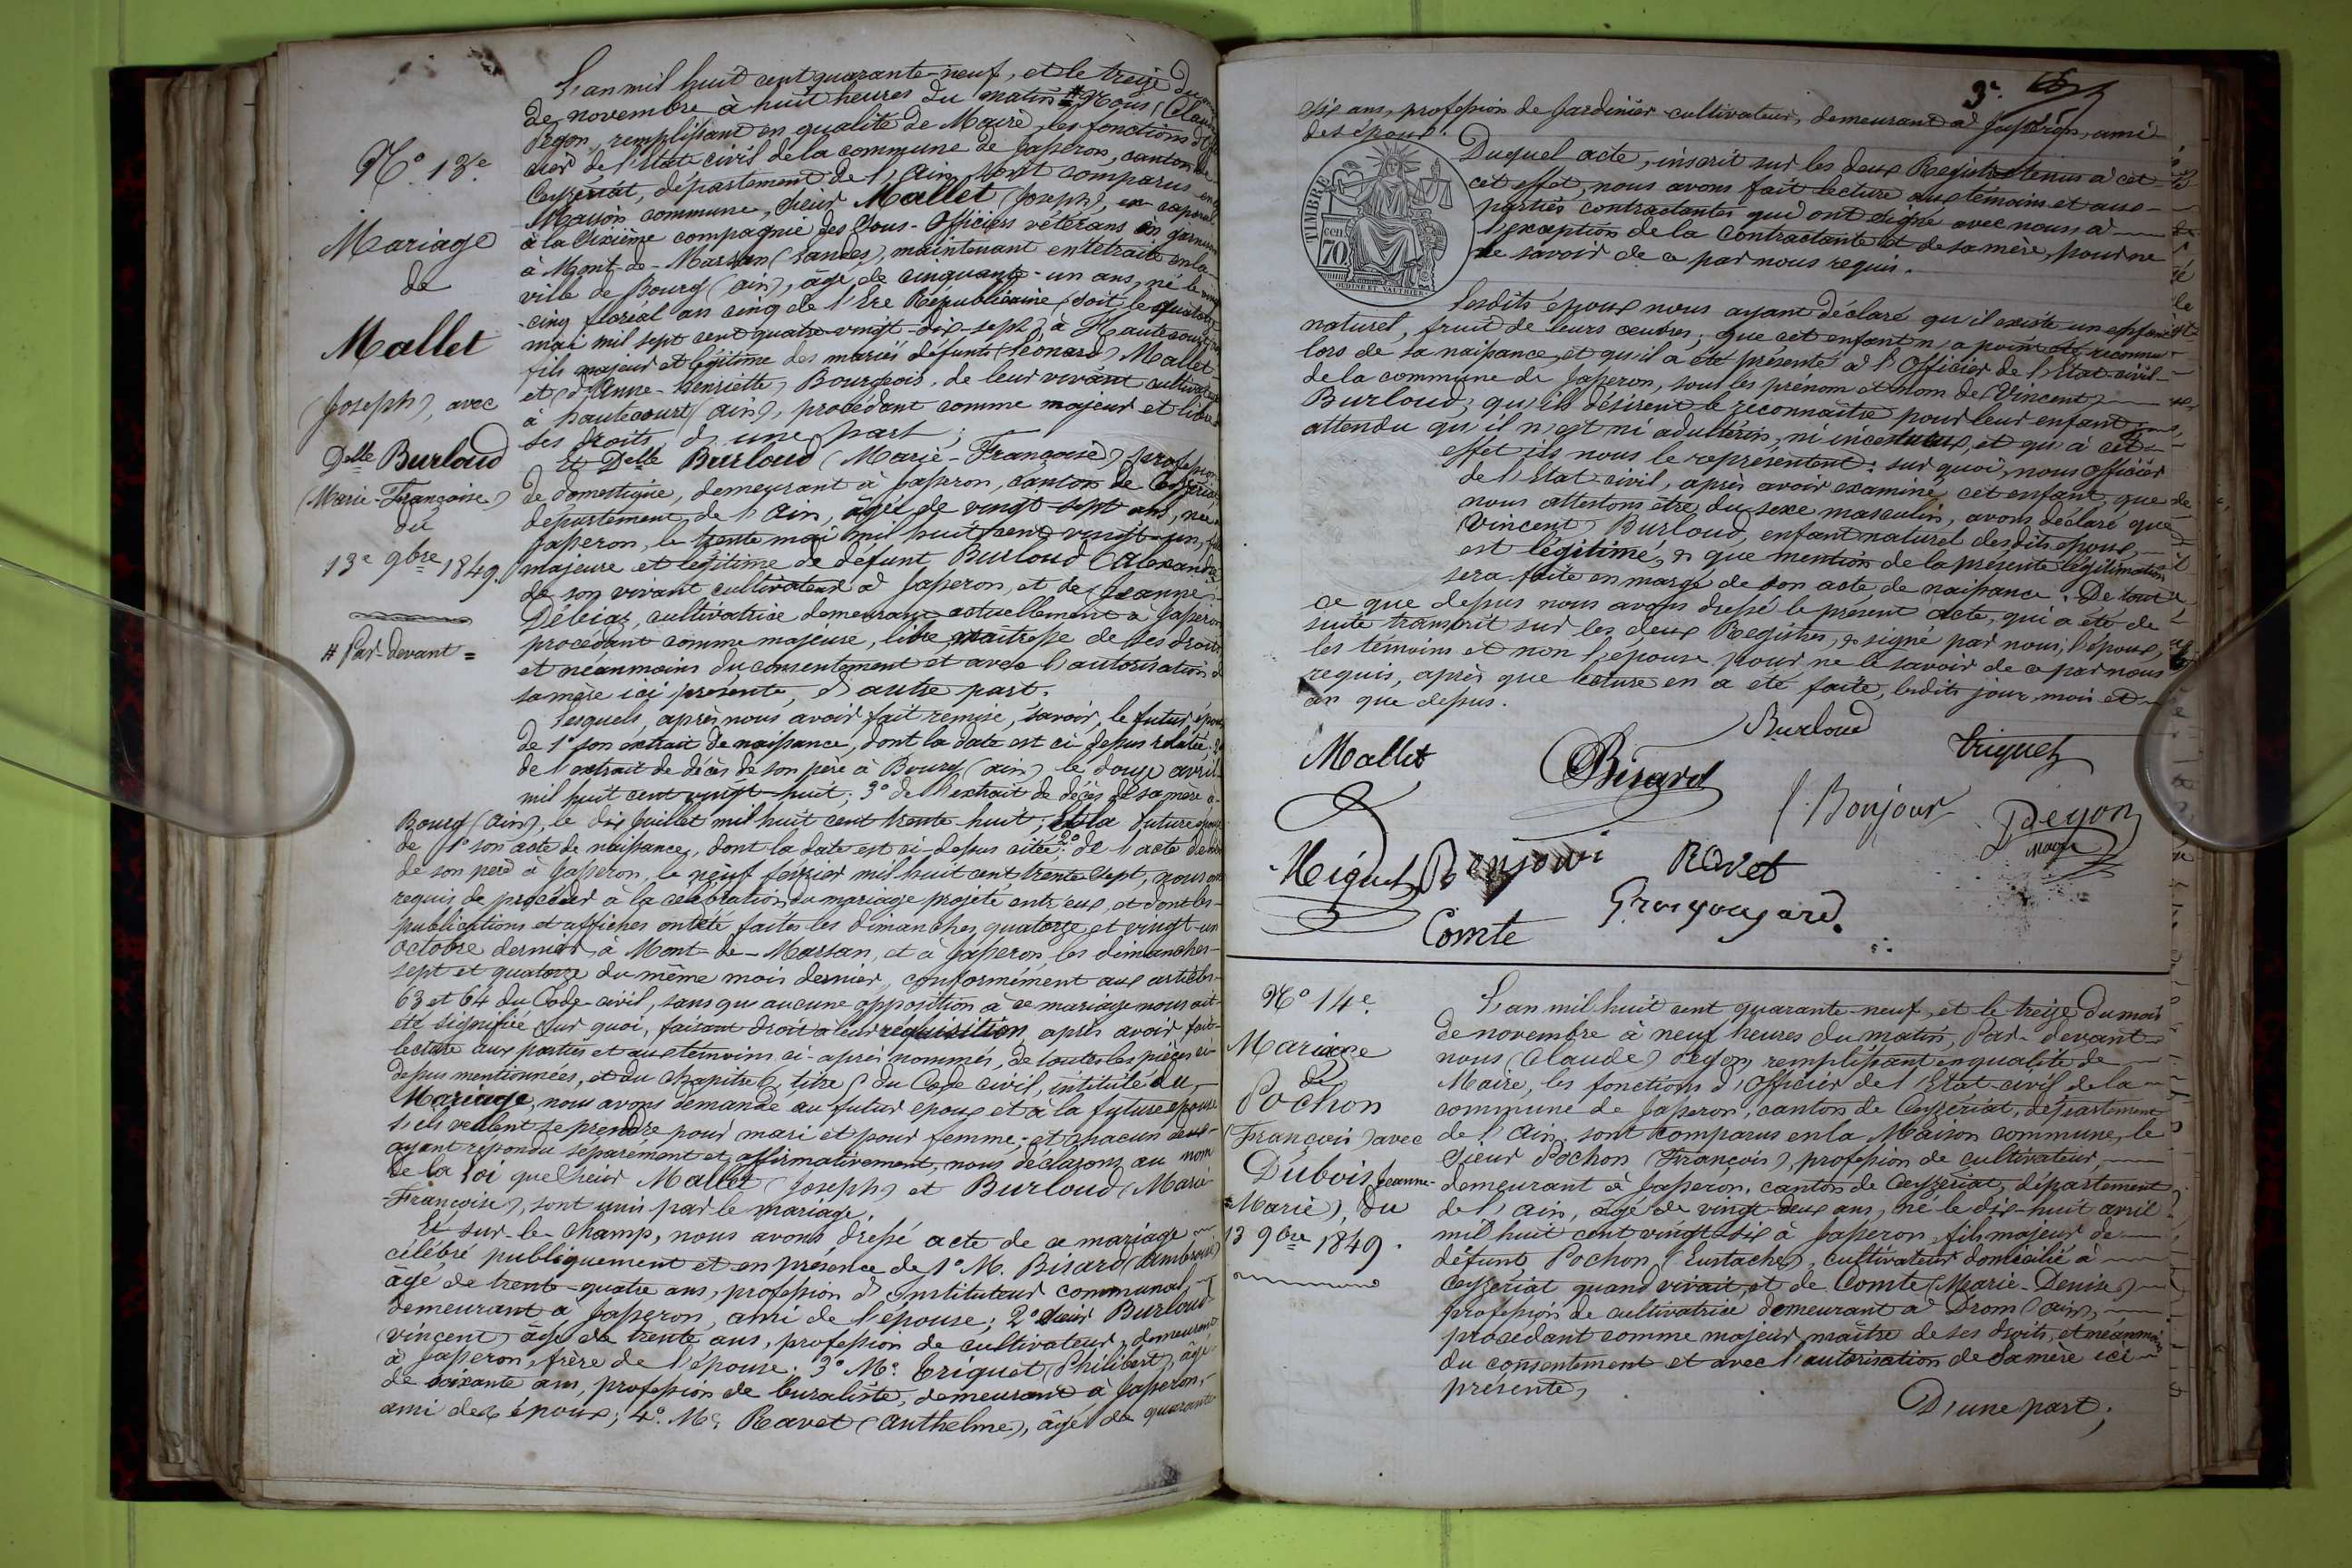 N.° 13.e
Mariage
de
Mallet
(Joseph), avec
Delle Burloud
(Marie-Françoise)
du
13e 9bre 1849.
# Par-devant =
L'an mil huit cent quarante-neuf, et le treize du
de novembre à huit heures du matin # Nous (Claude
Pegon, remplissant en qualité de Maire, les fonctions d'
cier de l'Etat civil de la commune de Jasseron, canton de
Ceyzériat, département de l'Ain, sont comparus en
Maison commune, Sieur Mallet (Joseph), ex-caporal
à la sixième compagnie des Sous-Officiers vétérans en garnison
à Mont-de-Marsan (Landes), maintenant en retraite en la
ville de Bourg (Ain), âgé de cinquante-un ans, né le vingt
-cinq floréal an cinq de l'Ere Républicaine (soit le quatorze
mai mil sept cent quatre-vingt-dix-sept), à Hautecourt,
fils majeur et légitime des mariés défunts (Léonard) Mallet
et (d'Anne-henriette) Bourgeois, de leur vivant cultivateurs
à hautecourt (Ain), procédant comme majeur et libre de
ses droits, d'une part;
Et Delle Burloud (Marie-Françoise) profession
de domestique, demeurant à Jasseron, canton de Ceyzériat
département de l'Ain, âgée de vingt-sept ans, née à
Jasseron, le trente mai mil huit cent vingt-un, fille
majeure et légitime de défunt Burloud (Alexandre
de son vivant cultivateur à Jasseron, et de (Jeanne
Débiaz, cultivatrice demeurant actuellement à Jasseron
procédant comme majeure, libre, maîtresse de ses droits
et néanmoins du consentement et avec l'autorisation de
sa mère ici présente, d'autre part.
Lesquels, après nous avoir fait remise, savoir, le futur époux
de 1° son extrait de naissance, dont la date est ci-dessus relatée; 2°
de l'extrait de décès de son père à Bourg (Ain) le douze avril
mil huit cent vingt-huit; 3° de l'extrait de décès de sa mère à
Bourg (Ain), le dix Juillet mil huit cent trente-huit; Et la future épouse
de 1° son acte de naissance, dont la date est ci-dessus citée; 2° de l'acte de décès
de son père à Jasseron, le neuf février mil huit cent trente-sept, nous ont
requis de procéder à la célébration du mariage projeté entr'eux, et dont les
publications et affiches ont été faites les dimanches, quatorze et vingt-un
octobre dernier, à Mont-de-Marsan, et à Jasseron, les dimanches
sept et quatorze du même mois dernier, conformément aux articles
63 et 64 du Code-civil, sans que aucune opposition à ce mariage nous ait
été signifiée; Sur quoi, faisant droit à leur réquisition, après avoir fait
lecture aux parties et aux témoins ci-après nommés, de toutes les pièces ci-
dessus mentionnées, et du chapitre 6, titre 5 du Code civil, intitulé du
Mariage, nous avons demandé au futur époux et à la future épouse
s'ils veulent se prendre pour mari et pour femme; et chacun d'eux
ayant répondu séparément et affirmativement, nous déclarons au nom
de la Loi que Sieur Mallet (Joseph) et Burloud (Marie-
Françoise), sont unis par le mariage.
Et sur-le-champ, nous avons dressé acte de ce mariage
célébré publiquement et en présence de 1° M. Bisard (Ambroise)
âgé de trente-quatre ans, profession d'Instituteur communal,
demeurant à Jasseron, ami de l'épouse; 2° Sieur Burloud
(vincent) âgé de trente ans, profession de cultivateur, demeurant
à Jasseron, frère de l'épouse; 3° Mr. Criquet (Philibert), âgé
de soixante ans, profession de buraliste, demeurant à Jasseron,
ami des époux; 4° Mr. Ravet (Anthelme), âgé de quarante
9e.
six ans, profession de Jardinier-cultivateur, demeurant à Jasseron, ami
des époux.
TIMBRE
cen
70
OUDINE ET VAUTHIER
Duquel acte, inscrit sur les deux Registres tenus à cet
cet effet, nous avons fait lecture aux témoins et aux
parties contractantes qui ont signé avec nous à
l'exception de la contractante et de sa mère, pour ne
le savoir de ce par nous requis.
Lesdits époux nous ayant déclaré qu'il existe un enfant
naturel, fruit de leurs œuvres; que cet enfant n'a point été reconnu
lors de sa naissance, et qu'il a été présenté à l'Officier de l'Etat-civil
de la commune de Jasseron, sous les prénom et nom de (Vincent)
Burloud; qu'ils désirent le reconnaître pour leur enfant
attendu qu'il n'est ni adultérin, ni incestueux, et qu'à cet
effet ils nous le représentent: sur quoi, nous officier
de l'Etat civil, après avoir examiné cet enfant, que
nous attestons être du sexe masculin, avons déclaré que
(Vincent) Burloud, enfant naturel desdits époux,
est légitimé, & que mention de la présente légitimation
sera faite en marge de son acte de naissance. De tout
ce que dessus nous avons dressé le présent acte, qui a été de
suite transcrit sur les deux Registres, & signé par nous, l'époux,
les témoins et non l'épouse pour ne le savoir de ce par nous
requis, après que lecture en a été faite, lesdits jour, mois et
an que dessus.
Burloud
Mallet
Bisard
Criquet
f. Bonjour
Pegon
maire
Benjoui
Ravet
Comte
Grosgougeard.
N.° 14e.
Mariage
de
Pochon
(François) avec
Dubois Jeanne-
Marie), du
13 9bre 1849.
L'an mil huit cent quarante-neuf, et le treize du mois
de novembre à neuf heures du matin, Par-devant
nous (Claude) Pegon, remplissant en qualité de
Maire, les fonctions d'Officier de l'Etat-civil de la
commune de Jasseron, canton de Ceyzériat, département
de l'Ain, sont comparus en la Maison commune, le
Sieur Pochon (François), profession de cultivateur,
demeurant à Jasseron, canton de Ceyzériat, département
de l'Ain, âgé de vingt-deux ans, né le dix-huit avril
mil huit cent vingt-six à Jasseron, fils majeur de
défunt Pochon (Eustache), cultivateur domicilié à
Ceyzériat quand vivait, et de Comte (Marie-Denise)
profession de cultivatrice demeurant à Drom (Ain),
procédant comme majeur, maître de ses droits, et néanmoins
du consentement et avec l'autorisation de sa mère ici
présente,
D'une part;